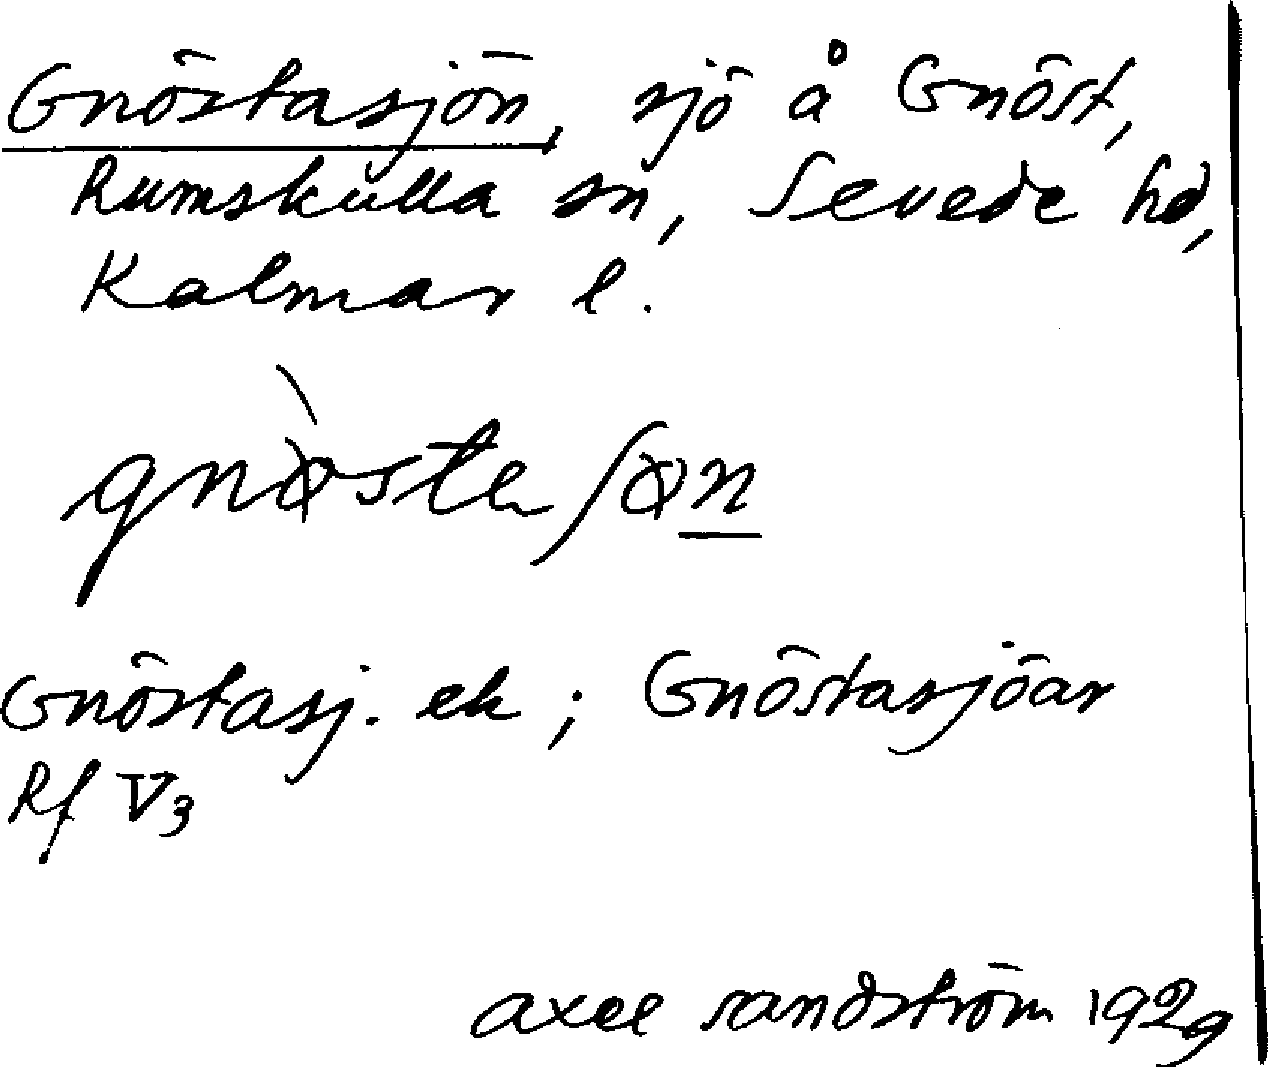 Gnöstasjön, sjö å Gnöst,
Rumskulla sn, Sevede hd,
Kalmar l.
Gnöstasj. ek ; Gnöstasjöar
Rf V3
axel sandström 1929